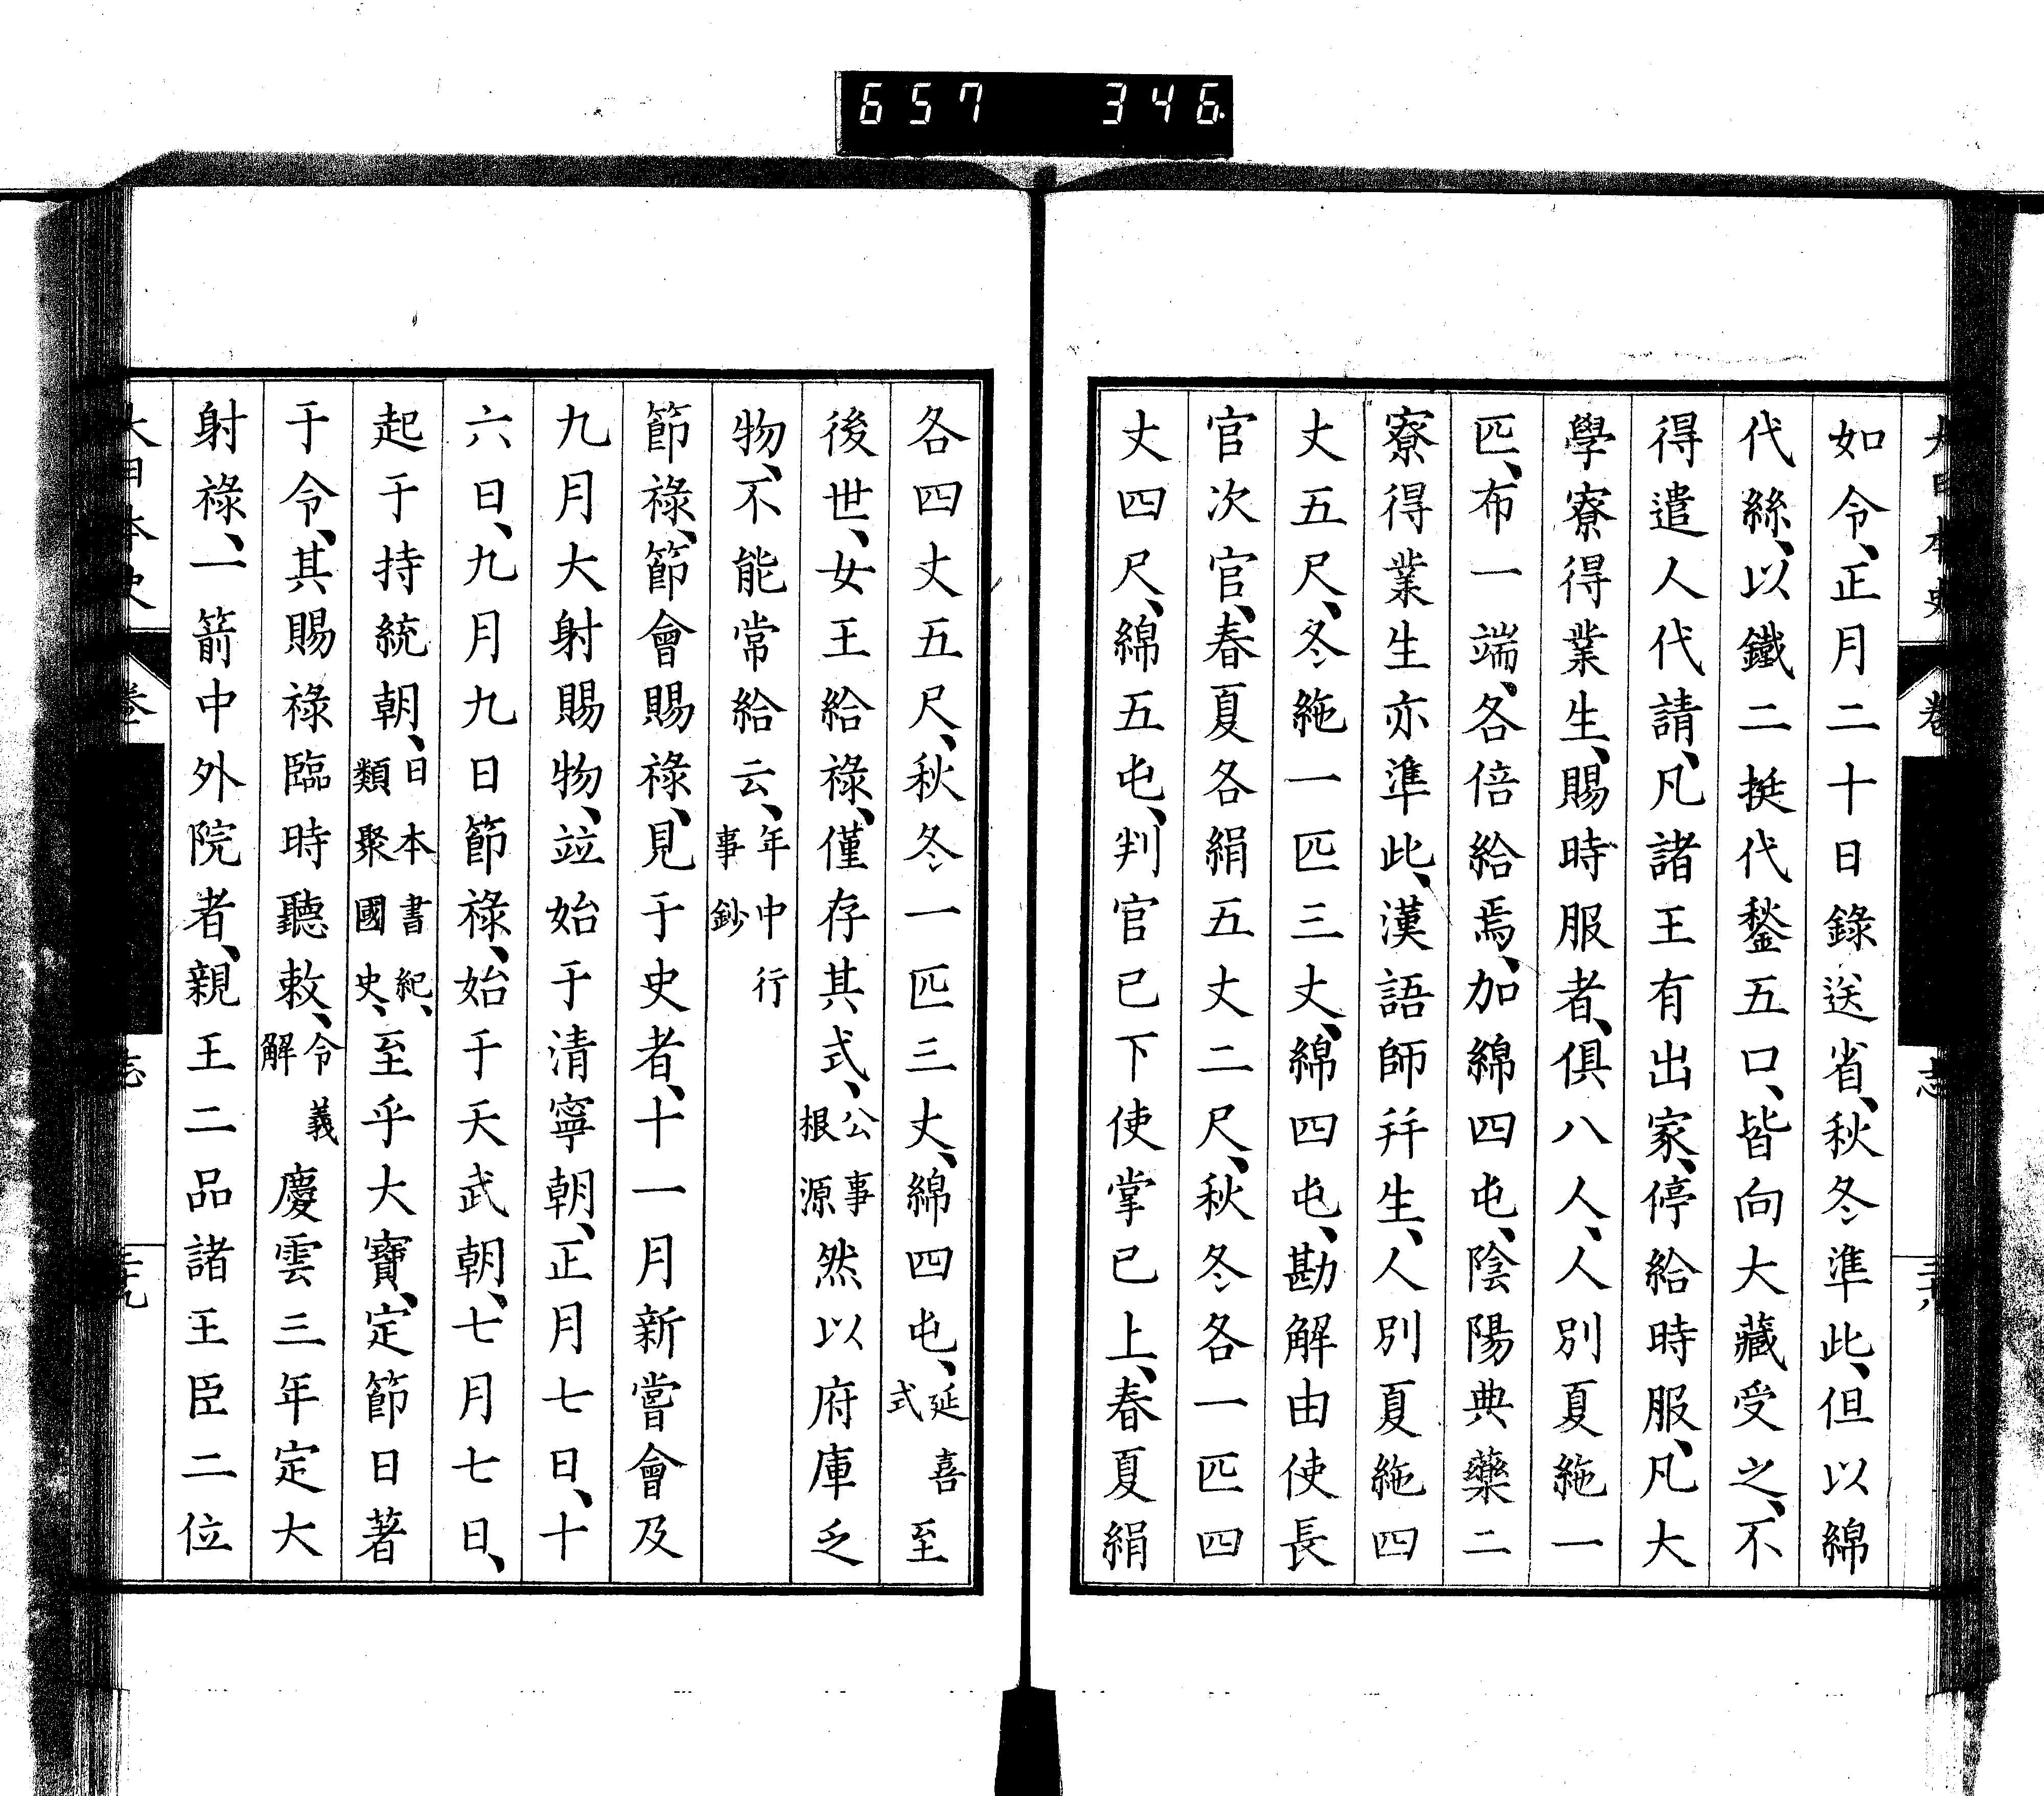 657 346
大日本史 卷 志 三十八
如令、正月二十日錄送省、秋冬準此、但以綿
代絲、以鐵二挺代鍫五口、皆向大藏受之、不
得遣人代請、凡諸王有出家、停給時服、凡大
學寮得業生、賜時服者、俱八人、人別夏絁一
匹、布一端、各倍給焉、加綿四屯、陰陽典藥二
寮得業生亦準此、漢語師幷生、人別夏絁四
丈五尺、冬絁一匹三丈、綿四屯、勘解由使長
官次官、春夏各絹五丈二尺、秋冬各一匹四
丈四尺、綿五屯、判官已下使掌已上、春夏絹
各四丈五尺、秋冬一匹三丈、綿四屯、延喜式至
後世、女王給祿、僅存其式、公事根源然以府庫乏
物、不能常給云、年中行事鈔
節祿、節會賜祿、見于史者、十一月新嘗會及
九月大射賜物、竝始于清寧朝、正月七日、十
六日、九月九日節祿、始于天武朝、七月七日、
起于持統朝、日本書紀、類聚國史、至乎大寶、定節日著
于令、其賜祿臨時聽敕、令義解慶雲三年定大
射祿、一箭中外院者、親王二品諸王臣二位
大日本史 卷 志 三十九